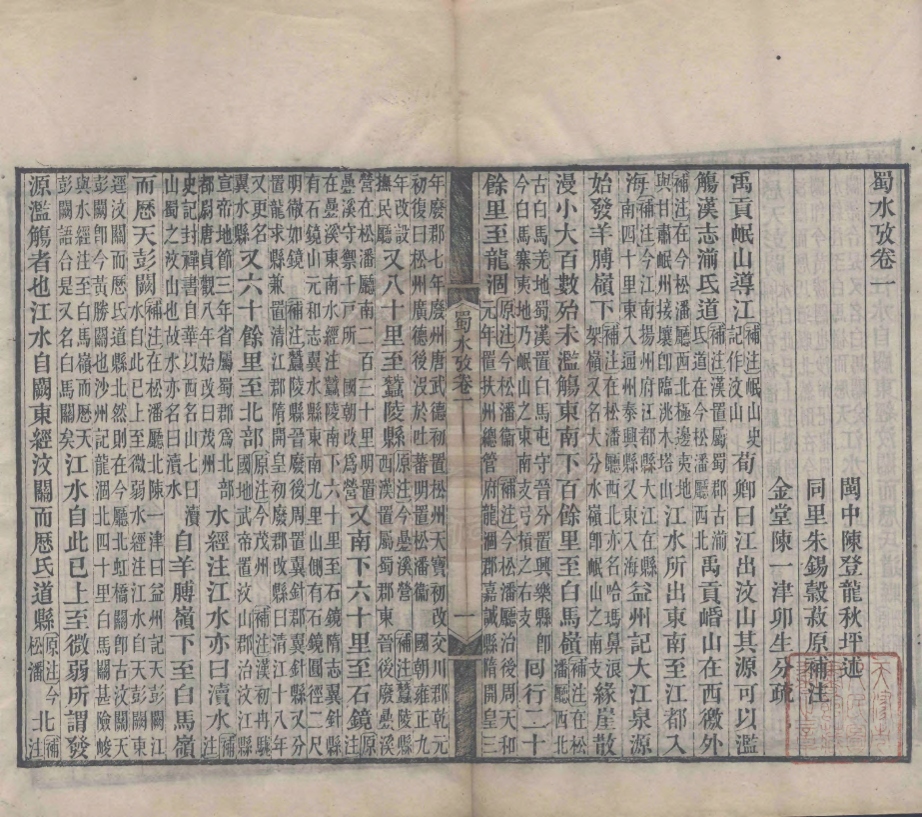 蜀水攷卷一
閩中陳登龍秋坪述
同里朱錫穀菽原補注
金堂陳一津卯生分疏
禹貢岷山導江補注岷山史記作汶山荀卿曰江出汶山其源可以濫
觴漢志湔氐道補注漢置屬蜀郡古湔氐道在今松潘廳西北禹貢㟭山在西徼外
補注在今松潘廳西北極邊夷地與甘肅岷州接壤卽臨洮木塔山江水所出東南至江都入
海補注今江南揚州府江都縣大江在縣南四十里東入通州泰興縣又東入海益州記大江泉源
始發羊膊嶺下補注在松潘廳西北亦名哈瑪鼻浪架嶺又名大分水嶺卽岷山之南支緣崖散
漫小大百數殆未濫觴東南下百餘里至白馬嶺補注在松潘廳西北
古白馬羌地蜀漢置白馬屯守晉分置興樂縣卽今白馬寨夷地乃岷山之東南支弓槓之右支囘行二十
餘里至龍涸原注今松潘衞補注松潘廳治後周天和元年置扶州總管府龍涸郡嘉誠縣隋開皇三
蜀水攷卷一
一
年廢郡七年廢州唐武德初置松州天寶初改交川郡乾元初復曰松州廣德後沒於吐蕃明置松潘衞 國朝雍正九
年改設撫民廳又八十里至蠶陵縣原注今疊溪營補注蠶陵縣西漢置屬蜀郡東晉後廢疊溪
營在松潘廳南二百三十里明置疊溪守禦千戸所 國朝改為營又南下六十里至石鏡原注
在疊溪東南水經注蠶陵南下六十里至石鏡隋志翼針縣有石鏡山元和志翼水縣東南九里山側有石鏡圓徑二尺
明徹如鏡補注蠶陵縣晉廢後周置翼針郡翼針縣又分置龍求縣兼置清江郡隋開皇初郡廢改縣曰清江十八年
又更名翼水縣又六十餘里至北部原注今茂州補注漢初冉駹國地武帝置汶山郡治汶江縣
宣帝地節三年省屬蜀郡爲北部都尉唐貞觀八年始改曰茂州水經注江水亦曰瀆水補注
史記封禪書自華以西名山七一曰瀆山蜀之汶山也故水亦名曰瀆水自羊膊嶺下至白馬嶺
而歷天彭闕補注在松潘廳北陳一津曰益州記天彭闕江水自此已上至微弱水經注江水自天彭闕東
逕汶關而歷氐道縣北然則在今廳北虹橋關卽古汶關天彭闕卽今黃勝關也沙州記龍涸北四十里白馬關甚險峻
與水經注至白馬嶺而歷天彭闕語合是又名白馬關矣江水自此已上至微弱所謂發
源濫觴者也江水自闕東經汶關而歷氐道縣原注今松潘北補注